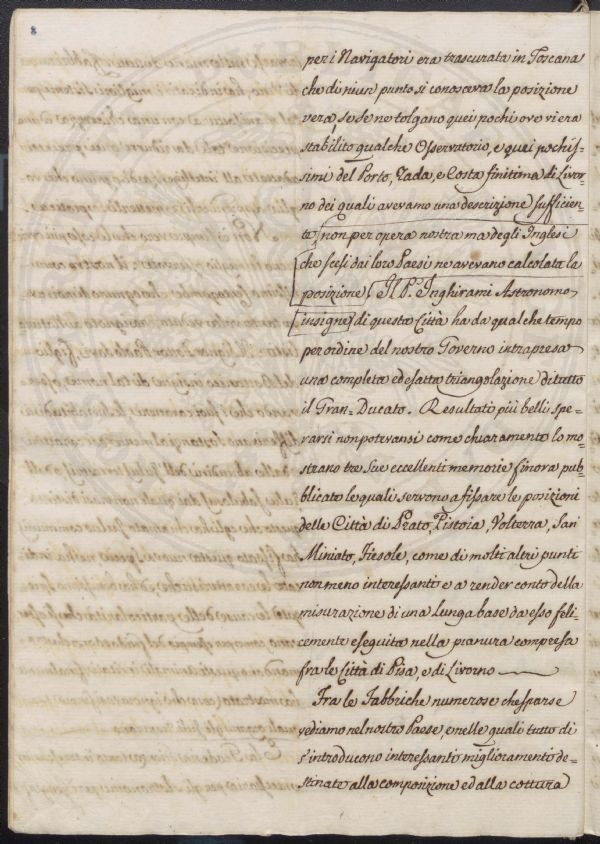 8
per i Navigatori era trascurata in Toscana
che di niun punto si conosceva la posizione
vera, se se ne tolgano quei pochi ove vi era
stabilito qualche Osservatorio, e quei pochis=
simi del Porto, Rada, e Costa finitima di Livor=
no dei quali avevamo una descrizione sufficien=
te, non per opera nostra ma degli Inglesi
che scesi dai loro Paesi ne avevano calcolata la
posizione. Il P. Inghirami Astronomo
insigne di questa Città ha da qualche tempo
per ordine del nostro Governo intrapresa
una completa ed esatta triangolazione di tutto
il Gran=Ducato. Resultati più belli spe=
rarsi non potevansi come chiaramente lo mo=
strano tre sue eccellenti memorie finora pub=
blicate le quali servono a fissare le posizioni
delle Città di Prato, Pistoia, Volterra, San
Miniato, Fiesole, come di molti altri punti
non meno interessanti e a render conto della
misurazione di una lunga base da esso feli=
cemente eseguita nella pianura compresa
fra le Città di Pisa, e di Livorno
Fra le Fabbriche numerose che sparse
vediamo nel nostro Paese, e nelle quali tutto dì
s'introducono interessanti miglioramenti de=
stinate alla composizione ed alla cottura